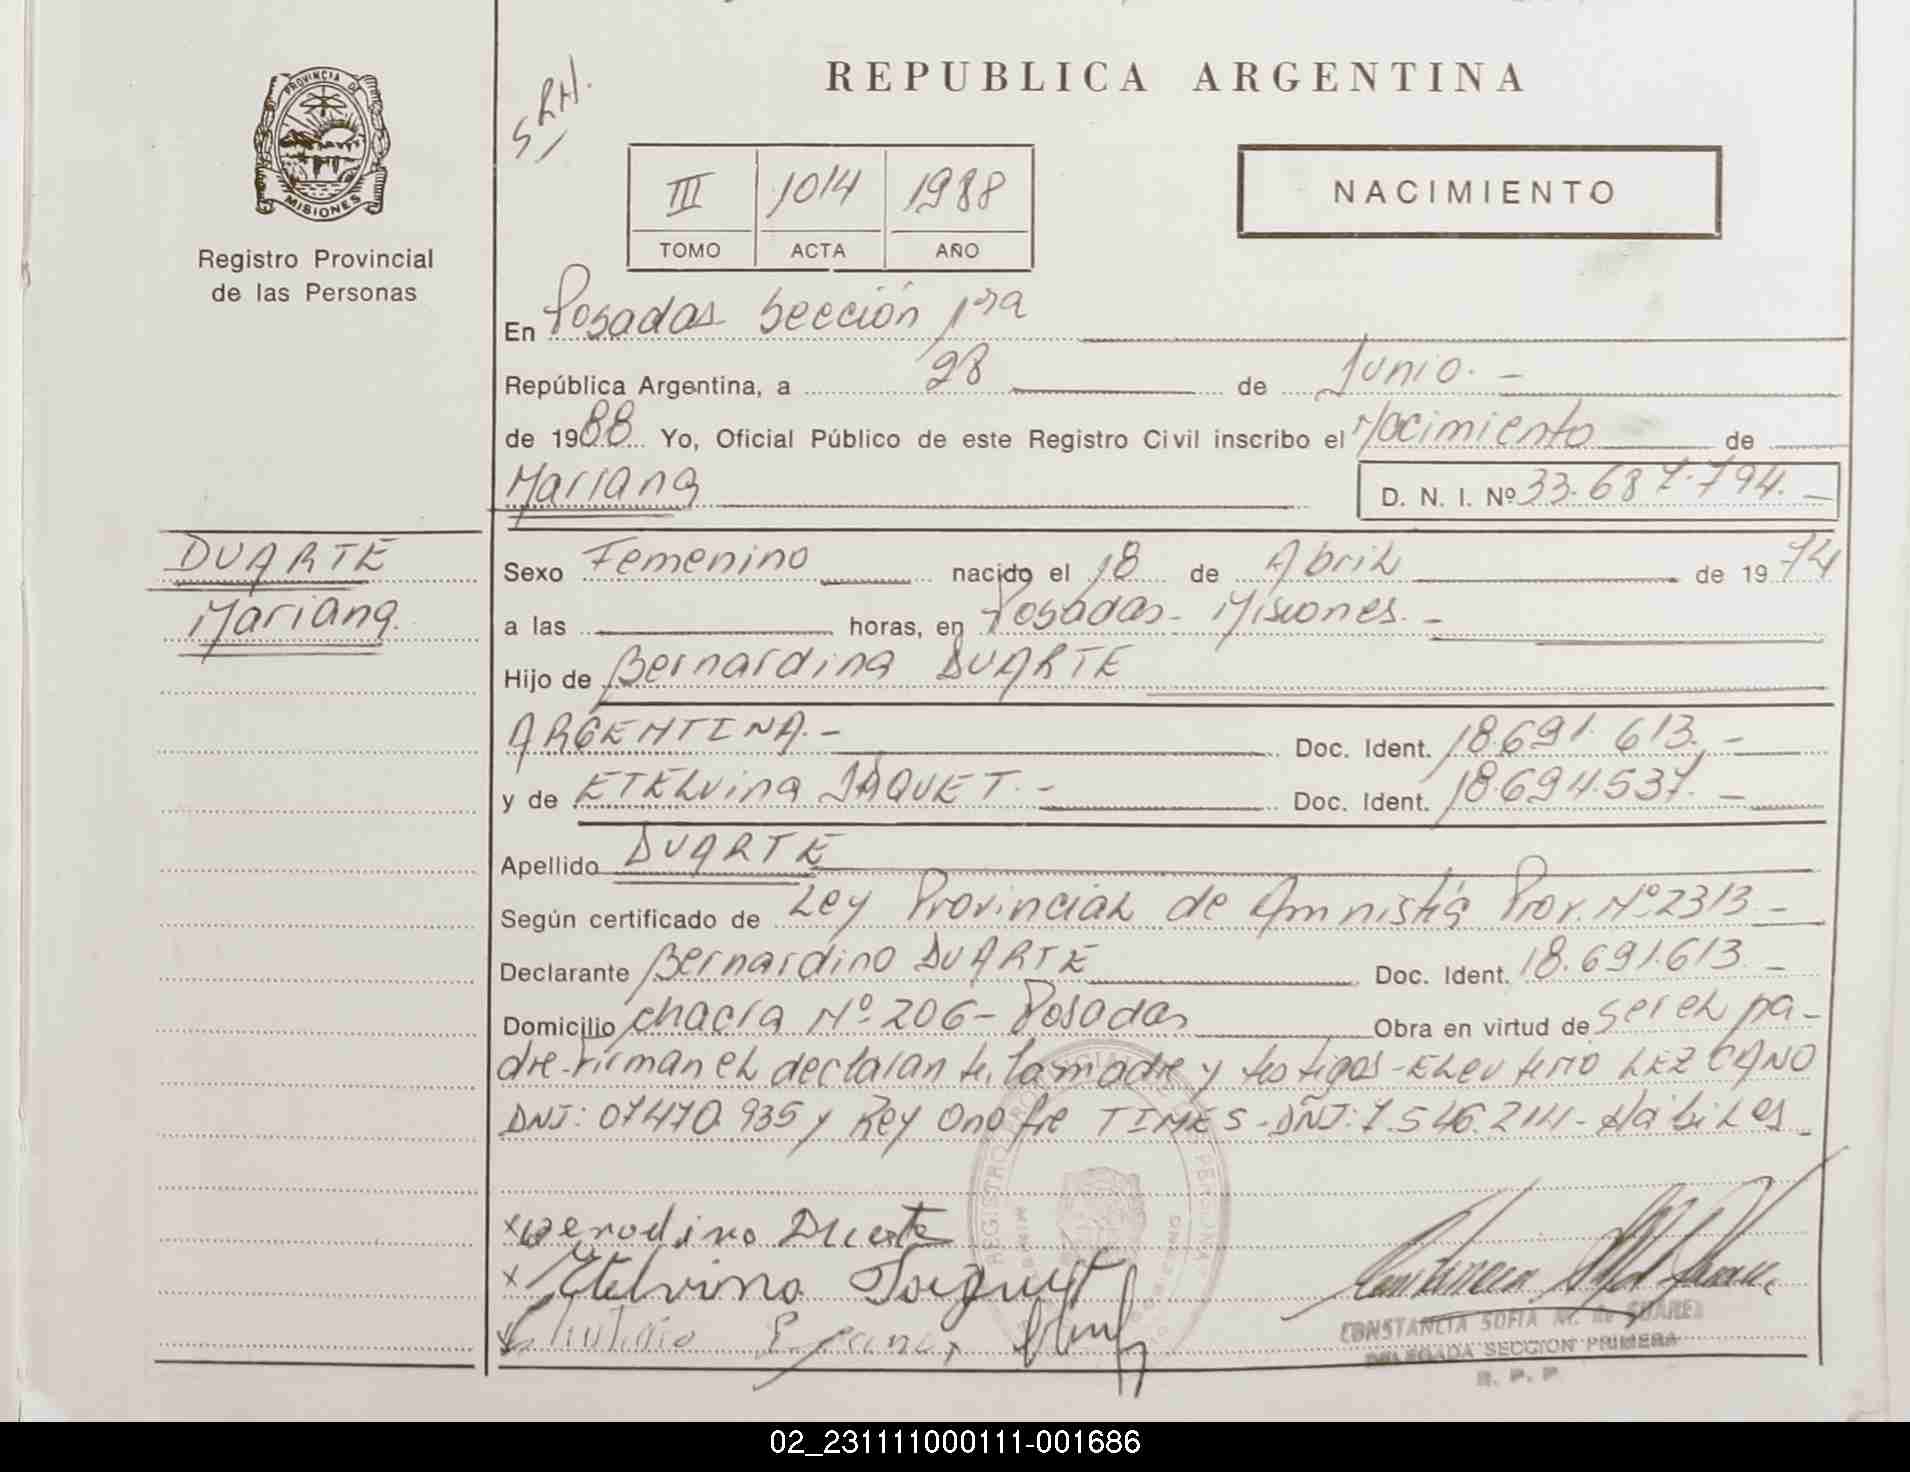 REPUBLICA ARGENTINA
PROVINCIA DE
MISIONES
Registro Provincial
de las Personas
S/ RH.
III 1014 1988
TOMO ACTA AÑO
NACIMIENTO
En Posadas Sección 1ra
República Argentina, a 28 de Junio. -
de 1988 Yo, Oficial Público de este Registro Civil inscribo el Nacimiento de
Mariana D. N. I. Nº 33.687.794. -
DUARTE
Mariana.
Sexo Femenino nacido el 18 de Abril de 1974
a las horas, en Posadas - Misiones. -
Hijo de Bernardina DUARTE
ARGENTINA. - Doc. Ident. 18.691.613. -
y de ETELvina JAQUET. - Doc. Ident. 18.694.537. -
Apellido DUARTE
Según certificado de Ley Provincial de Amnistía Prov. Nº 2313 -
Declarante Bernardino DUARTE Doc. Ident. 18.691.613. -
Domicilio chacra Nº 206 - Posadas Obra en virtud de ser el pa-
dre - firman el declarante, la madre y testigos - Eleuterio LEZCANO
DNI: 07470.935 y Rey Onofre TIMES - DÑI: 7.546.214 - Hábiles -
x Duarte
x Etelvina Jaquet
CONSTANCIA SOFIA M. de SUAREZ
DELEGADA SECCION PRIMERA
R. P. P.
02_231111000111-001686